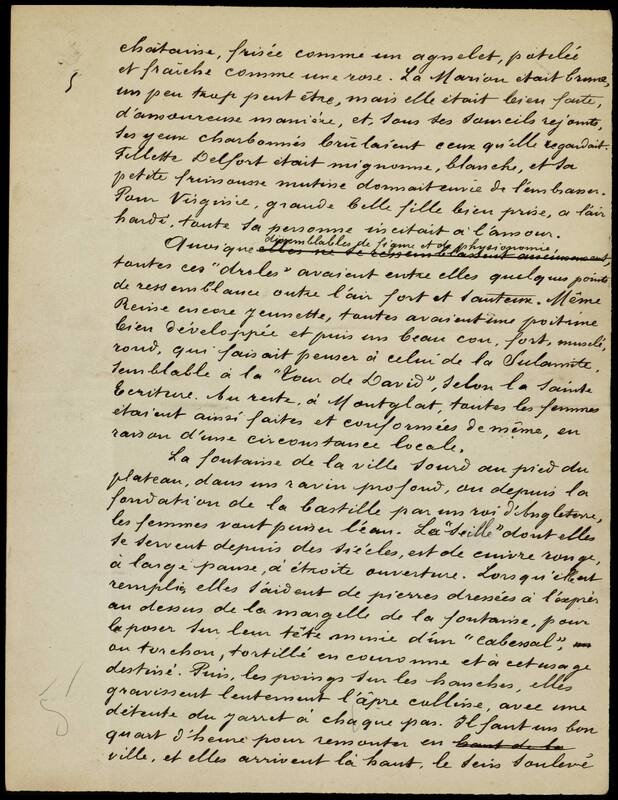 châtaine, frisée comme un agnelet, potelée
et fraîche comme une rose. La Marion était brune,
5
un peu trop peut être, mais elle était bien faite,
d'amoureuse manière, et, sous ses sourcils rejoints,
ses yeux charbonnés brûlaient ceux qu'elle regardait.
Fillette Delfort était mignonne, blanche, et sa
petite frimousse mutine donnait envie de l'embrasser.
Pour Virginie, grande belle fille bien prise, à l'air
hardi, toute sa personne incitait à l'amour.
dissemblables de figure et de physionomie,
Quoique elles ne se ressemblassent aucunement,
toutes ces "droles" avaient entre elles quelques points
de ressemblance outre l'air fort et sauteux. Même
Reine encore jeunette, toutes avaient une poitrine
bien développée et puis un beau cou, fort, musclé,
rond, qui faisait penser à celui de la Sulamite,
semblable à la "Tour de David", selon la Sainte
Ecriture. Au reste, à Montglat, toutes les femmes
étaient ainsi faites et conformées de même, en
raison d'une circonstance locale.
La fontaine de la ville sourd au pied du
plateau, dans un ravin profond, où depuis la
fondation de la bastille par un roi d'Angleterre,
les femmes vont puiser l'eau. La "seille" dont elles
se servent depuis des siécles, est de cuivre rouge,
à large panse, à étroite ouverture. Lorsqu'elle est
remplie, elles s'aident de pierres dressées à l'exprès
au dessus de la margelle de la fontaine, pour
la poser sur leur tête munie d'un "cabessal",
ou torchon, tortillé en couronne et à cet usage
destiné. Puis, les poings sur les hanches, elles
gravissent lentement l'âpre colline, avec une
détente du jarret à chaque pas. Il faut un bon
quart d'heure pour remonter en haut de la
ville, et elles arrivent là haut, le sein soulevé